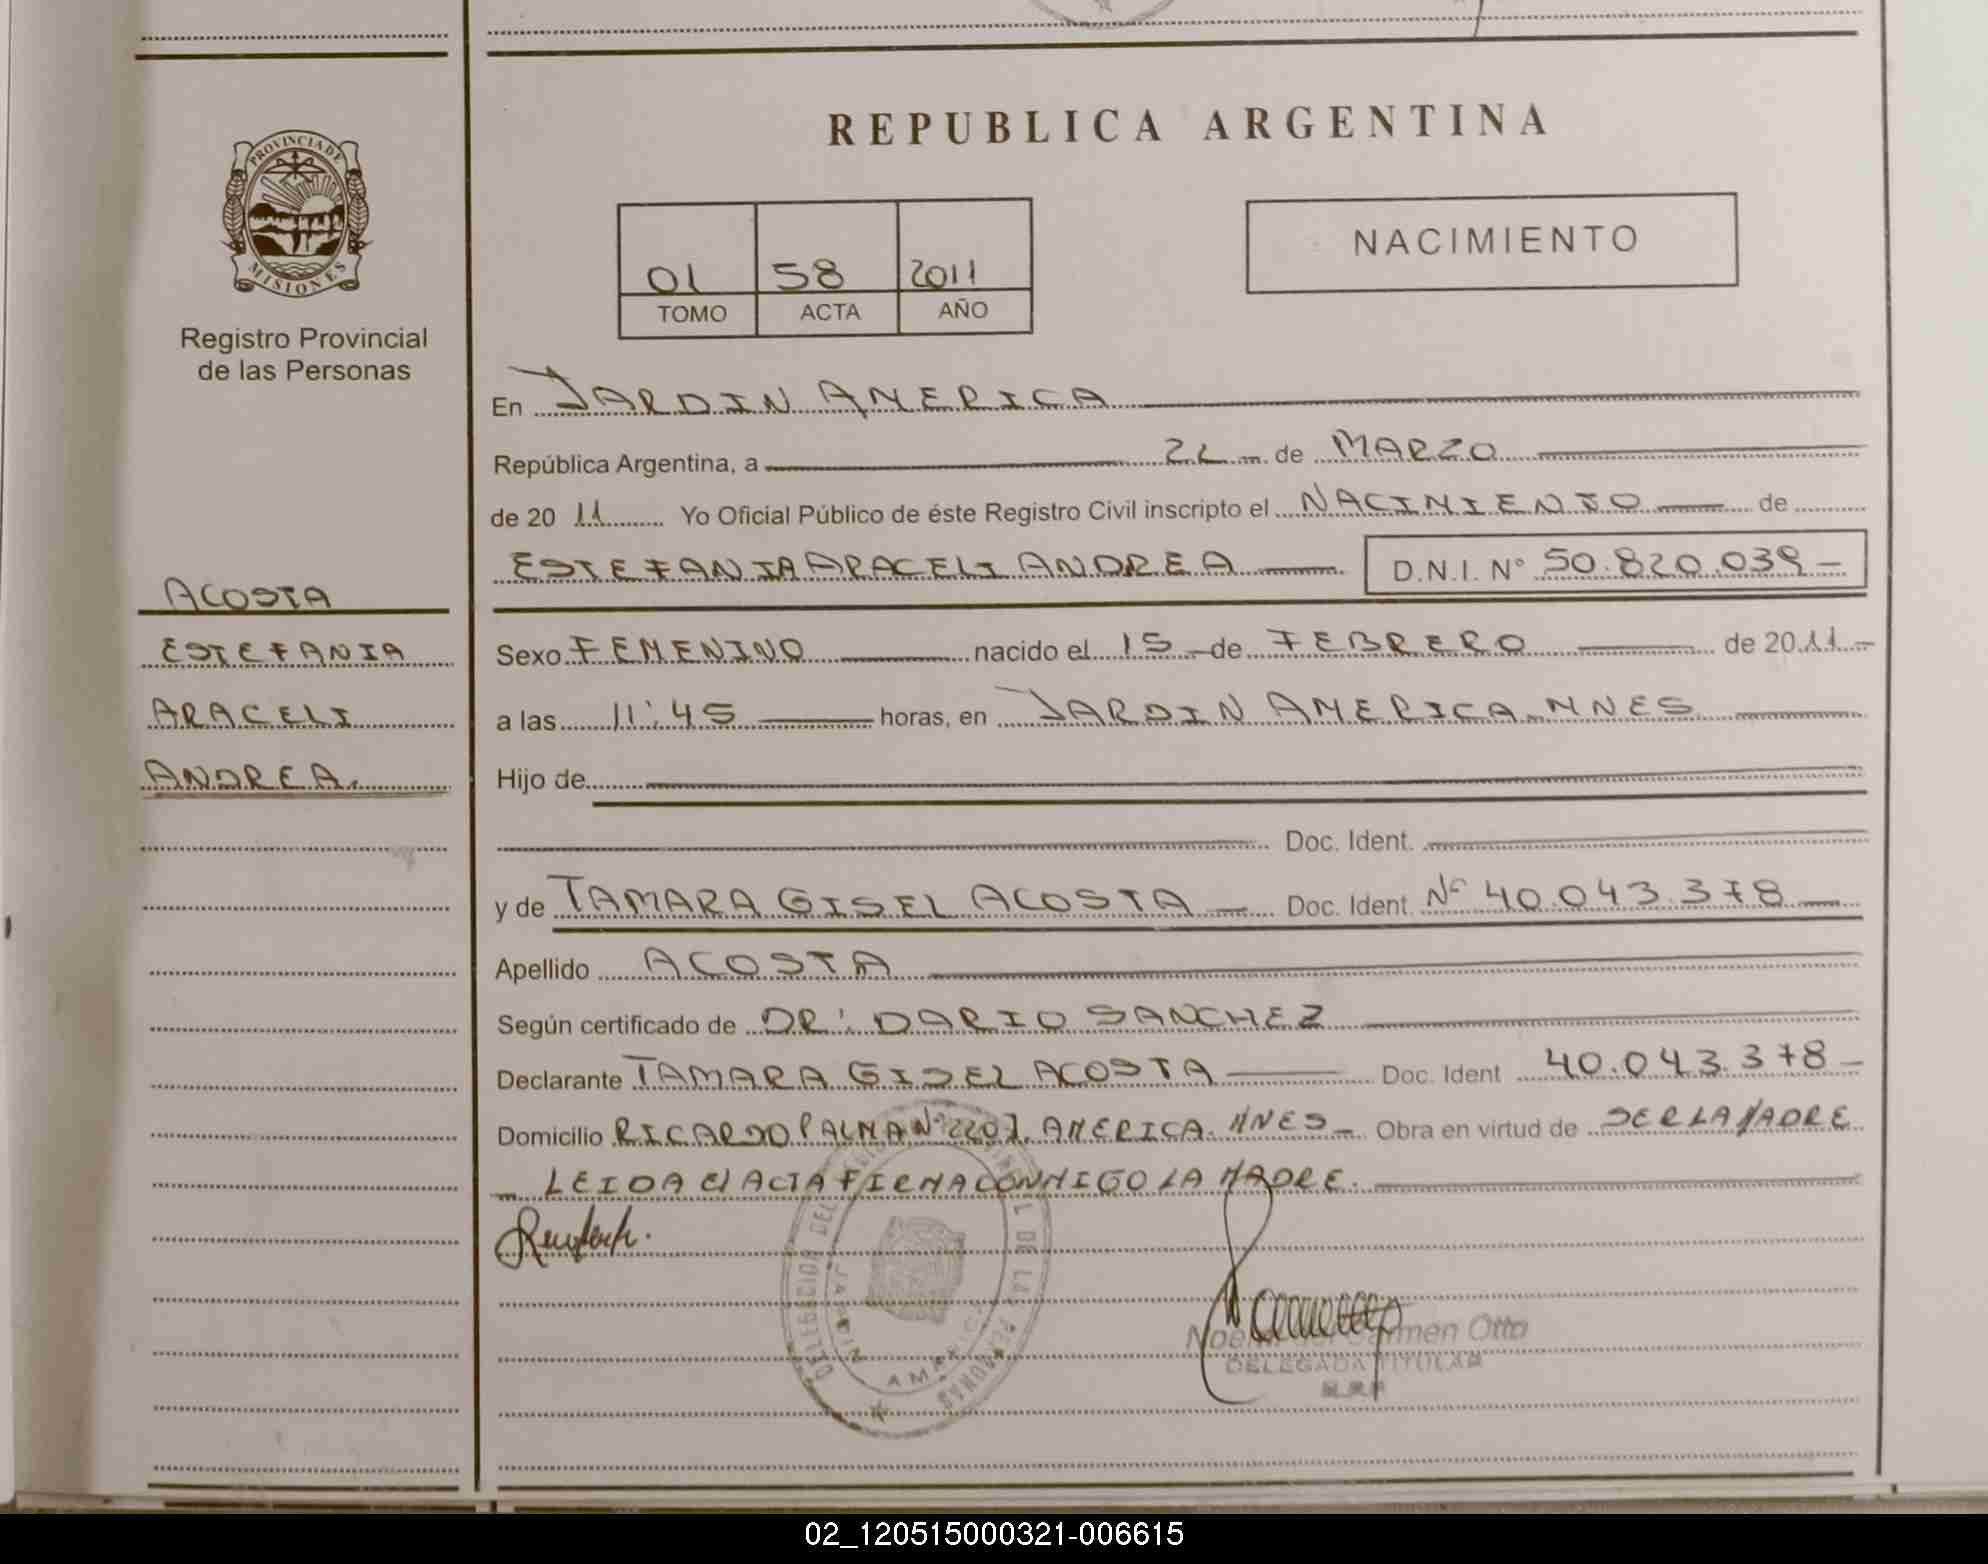 REPUBLICA ARGENTINA
PROVINCIA DE
MISIONES
Registro Provincial
de las Personas
01 58 2011
TOMO ACTA AÑO
NACIMIENTO
En JARDIN AMERICA
República Argentina, a 22 de MARZO
de 20 11 Yo Oficial Público de éste Registro Civil inscripto el NACIMIENTO de
ESTEFANIA ARACELI ANDREA D.N.I. Nº 50.820.039
ACOSTA
ESTEFANIA
ARACELI
ANDREA.
Sexo FEMENINO nacido el 15 de FEBRERO de 20 11
a las 11:45 horas, en JARDIN AMERICA MNES
Hijo de
Doc. Ident.
y de TAMARA GISEL ACOSTA Doc. Ident. Nº 40.043.378
Apellido ACOSTA
Según certificado de DR: DARIO SANCHEZ
Declarante TAMARA GISEL ACOSTA Doc. Ident 40.043.378
Domicilio RICARDO PALMA Nº 2207. AMERICA. MNES Obra en virtud de SER LA MADRE
LEIDA El ACTA FIRMA CONMIGO LA MADRE.
DELEGACION DEL PROVINCIAL DE LAS PERSONAS
JARDIN AMERICA
Carmen Otto
DELEGADA TITULAR
R.P.P.
02_120515000321-006615